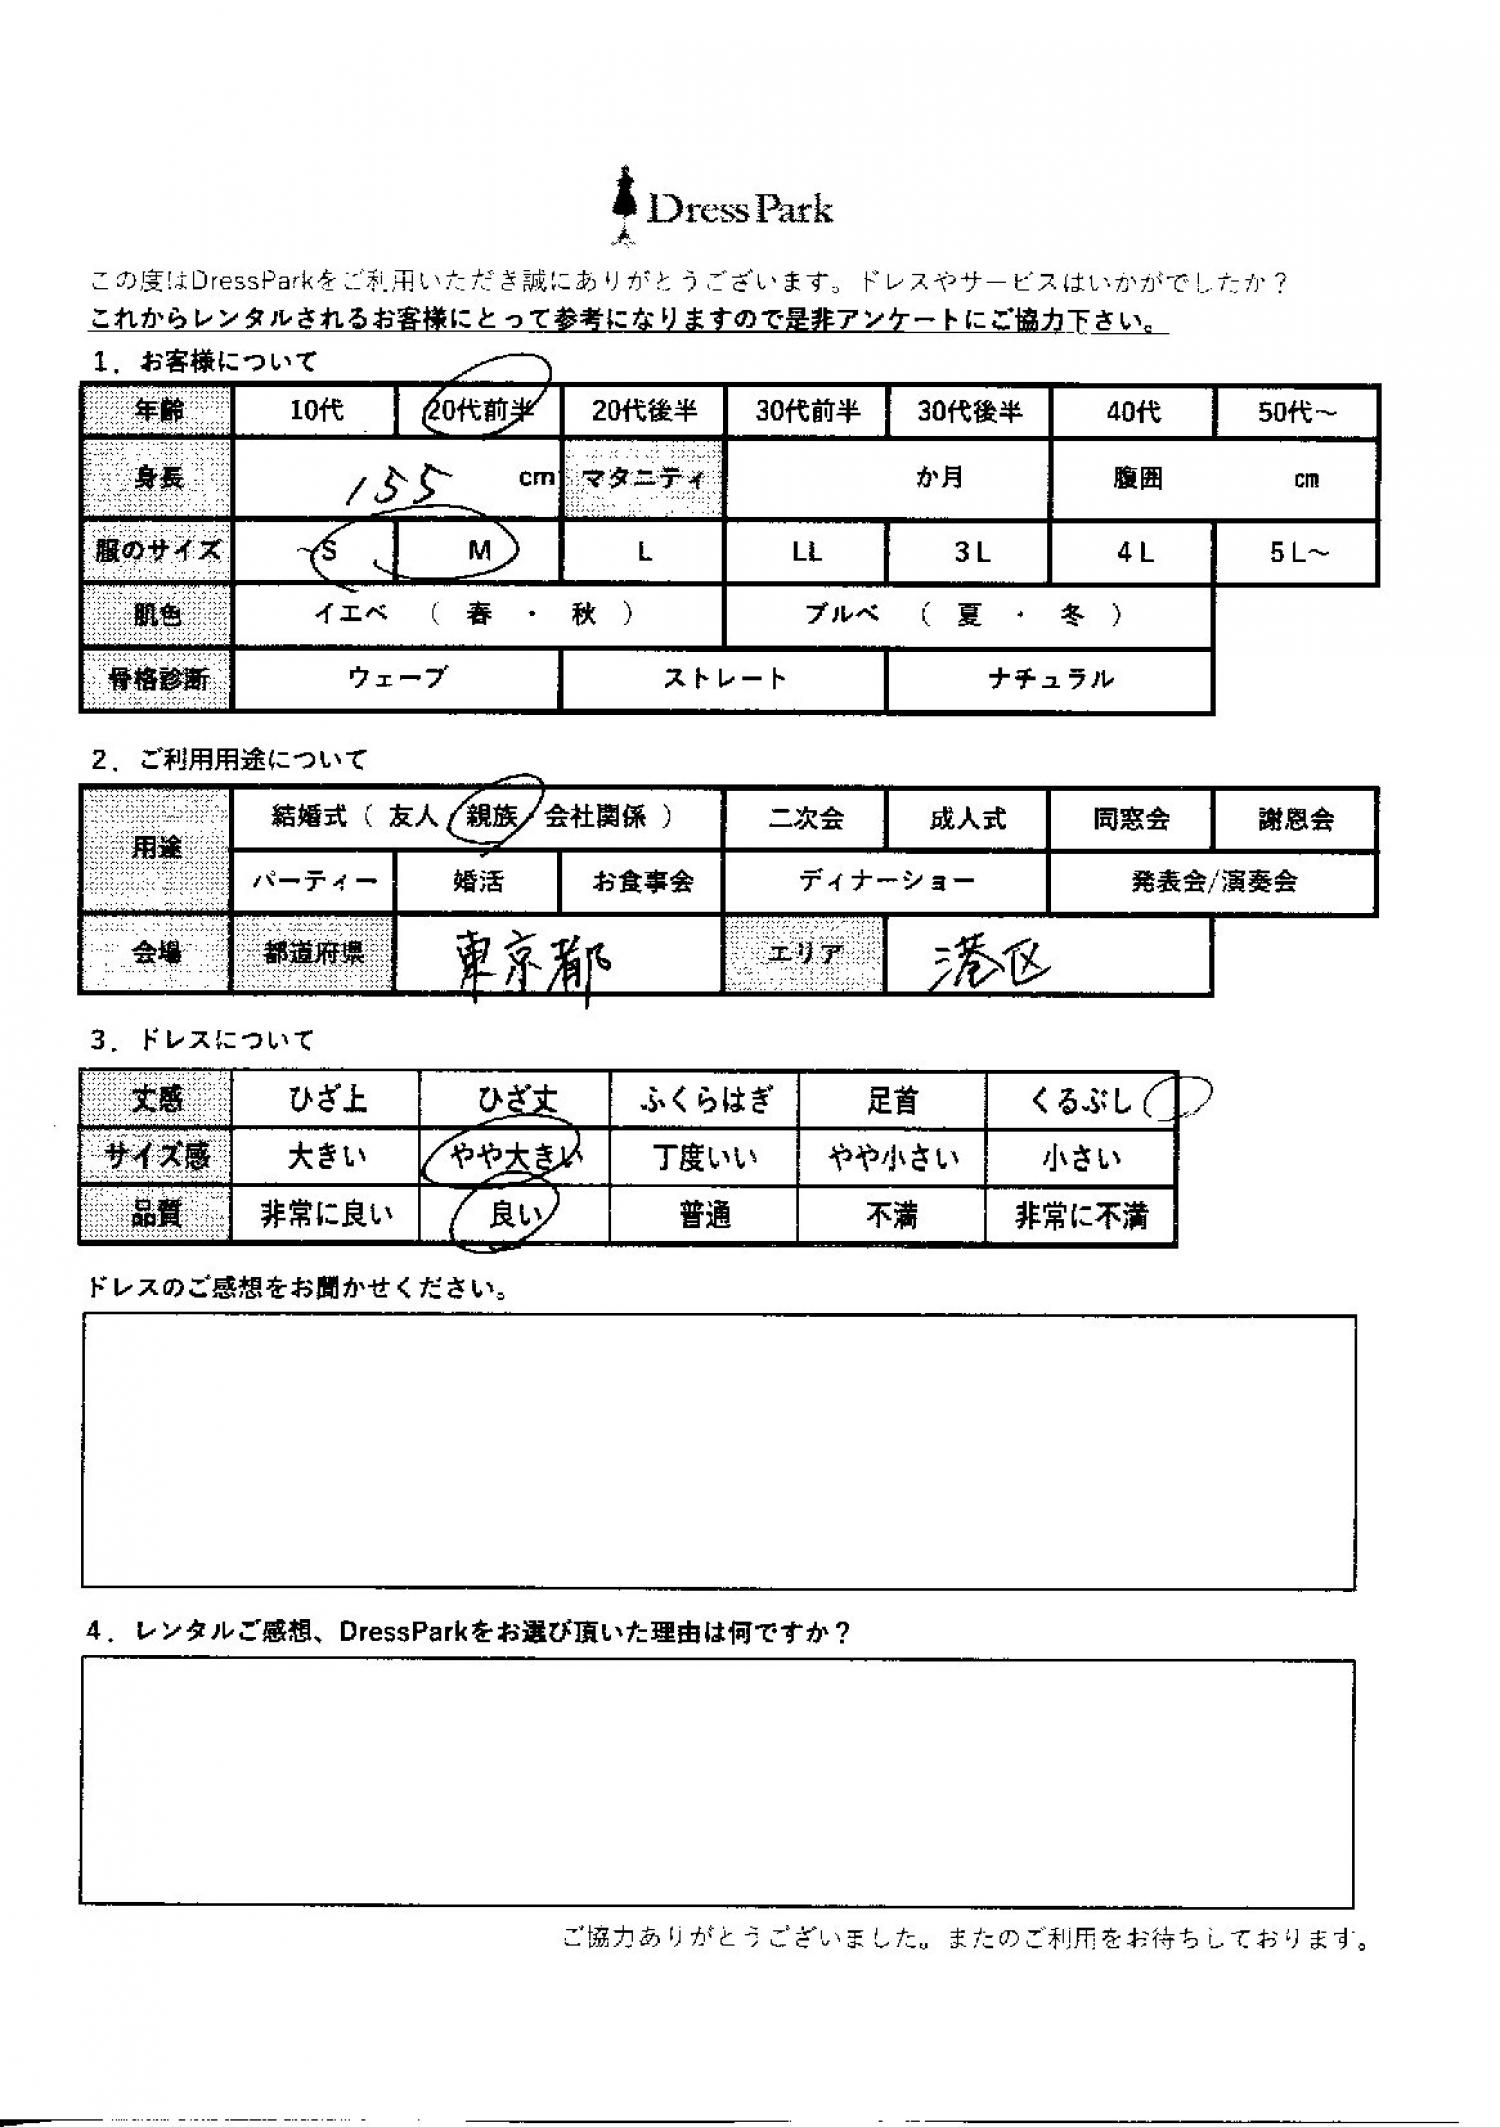 Dress Park
この度はDressParkをご利用いただき誠にありがとうございます。ドレスやサービスはいかがでしたか？
これからレンタルされるお客様にとって参考になりますので是非アンケートにご協力下さい。
1．お客様について
年齢 10代 20代前半 20代後半 30代前半 30代後半 40代 50代～
身長 155 cm マタニティ か月 腹囲 cm
服のサイズ ～S M L LL 3L 4L 5L～
肌色 イエベ （ 春 ・ 秋 ） ブルベ （ 夏 ・ 冬 ）
骨格診断 ウェーブ ストレート ナチュラル
2．ご利用用途について
用途 結婚式（ 友人 親族 会社関係 ） 二次会 成人式 同窓会 謝恩会
パーティー 婚活 お食事会 ディナーショー 発表会/演奏会
会場 都道府県 東京都 エリア 港区
3．ドレスについて
丈感 ひざ上 ひざ丈 ふくらはぎ 足首 くるぶし
サイズ感 大きい やや大きい 丁度いい やや小さい 小さい
品質 非常に良い 良い 普通 不満 非常に不満
ドレスのご感想をお聞かせください。
4．レンタルご感想、DressParkをお選び頂いた理由は何ですか？
ご協力ありがとうございました。またのご利用をお待ちしております。